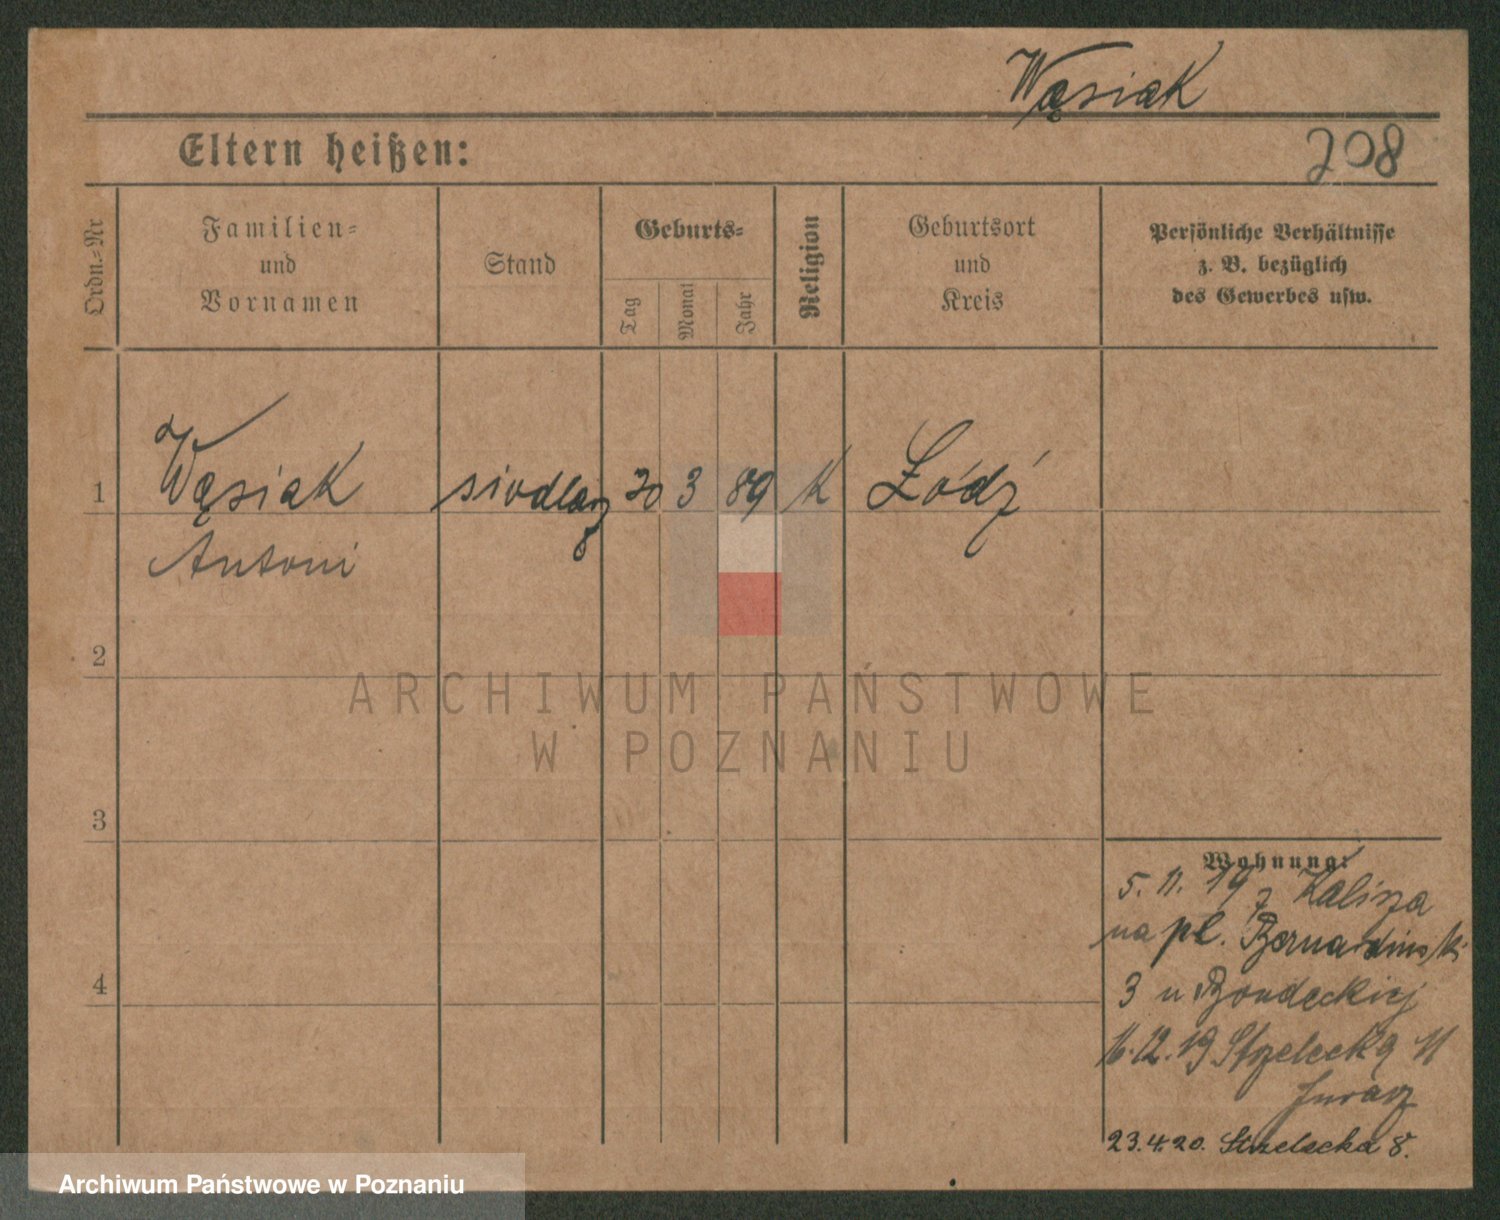 Wąsiak
208
Eltern heißen:
Ordn.-Nr
Familien-
und
Vornamen
Stand
Geburts-
Tag
Monat
Jahr
Religion
Geburtsort
und
Kreis
Persönliche Verhältnisse
z. B. bezüglich
des Gewerbes usw.
1 Wąsiak siodlarz 30 3 89 K Łódź
Antoni
2
3
4
Wohnung:
5. 11. 19 z Kalisza
na pl. Bernardinski
3 u
16.12.19 Strzelecką 11
23.4.20. Strzelecka 8.
ARCHIWUM PAŃSTWOWE
W POZNANIU
Archiwum Państwowe w Poznaniu